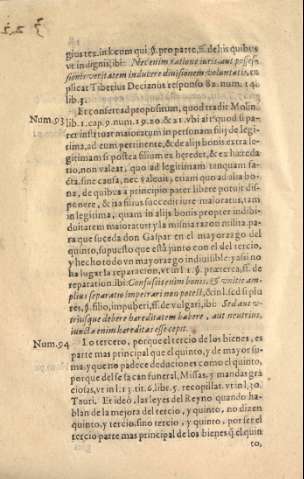 gius tex. in k com qui. §. pro parte, ff. de his quibus
ve indignis, ibi: Nec enim ratione iuris aut posses
sionis varietatem inducere divisionem voluntatis, ex
plicat Tiberius Decianus responso 82. num. 14.
lib. 3.
Num. 93 Et confiere ad propositum, quod tradit Molin.
lib. 1. cap. 9. num. 19. 20. & 21. vbi ait quod si pa-
ter instituat maioratum in personam filij de legi-
tima, ad eum pertinente, & de alijs bonis extra le-
gitimam si postea filium exheredet, & exhæreda-
tio, non valeat, quo ad legitimam tanquam fa-
cta, sine causa, nec valeat, etiam quo ad alia bo-
na, de quibus à principio pater libere potuit dis-
ponere, & ita filius succedit iure maioratus, tam
in legitima, quam in alijs bonis propter indibi-
duitatem maioratus y la misma razon milita pa-
ra que suceda don Gaspar en el mayorazgo del
quinto, supuesto que està junto con el del tercio,
y hecho todo vn mayorazgo indiuisible: y assi no
ha lugar la separacion, vt in l. 1. §. præterea, ff. de
reparation. ibi
plius separatio impetrari non potest, & in l. sed si plu
res, §. filio, impuberi, ff. de vulgari, ibi: Sed aut v-
triusque debere hæreditatem habere, aut neutrius,
iuncta enim hæreditas esse cepit.
Num. 94 Lo tercero, porque el tercio de los bienes, es
parte mas principal que el quinto, y de mayor su-
ma: y que no padece deduciones como el quinto,
porque del se saca funeral, Missas, y mandas gra
ciosas, vt in l. 13. tit. 6. lib. 5. recopilat. vt in l. 30.
Tauri. Et ideò, las leyes del Reyno quando ha-
blan de la mejora del tercio, y quinto, no dizen
quinto, y tercio, sino tercio, y quinto, por ser el
tercio parte mas principal de los bienes q̃ el quin
to,